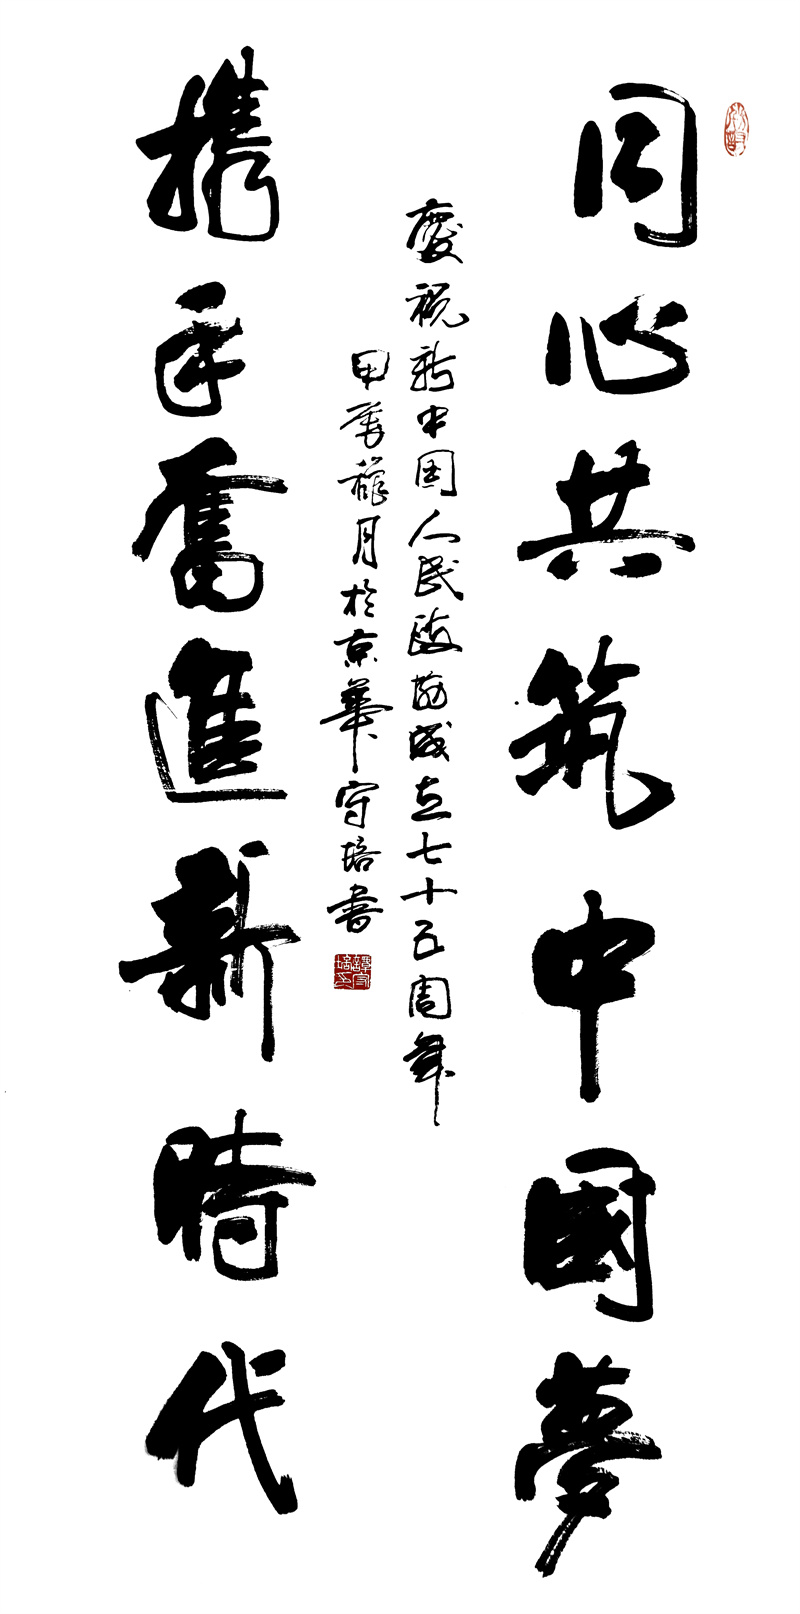 同心共筑中國夢
携手奮進新時代
慶祝新中国人民政府成立七十五周年
甲辰龍月於京華守培書
譚守培印